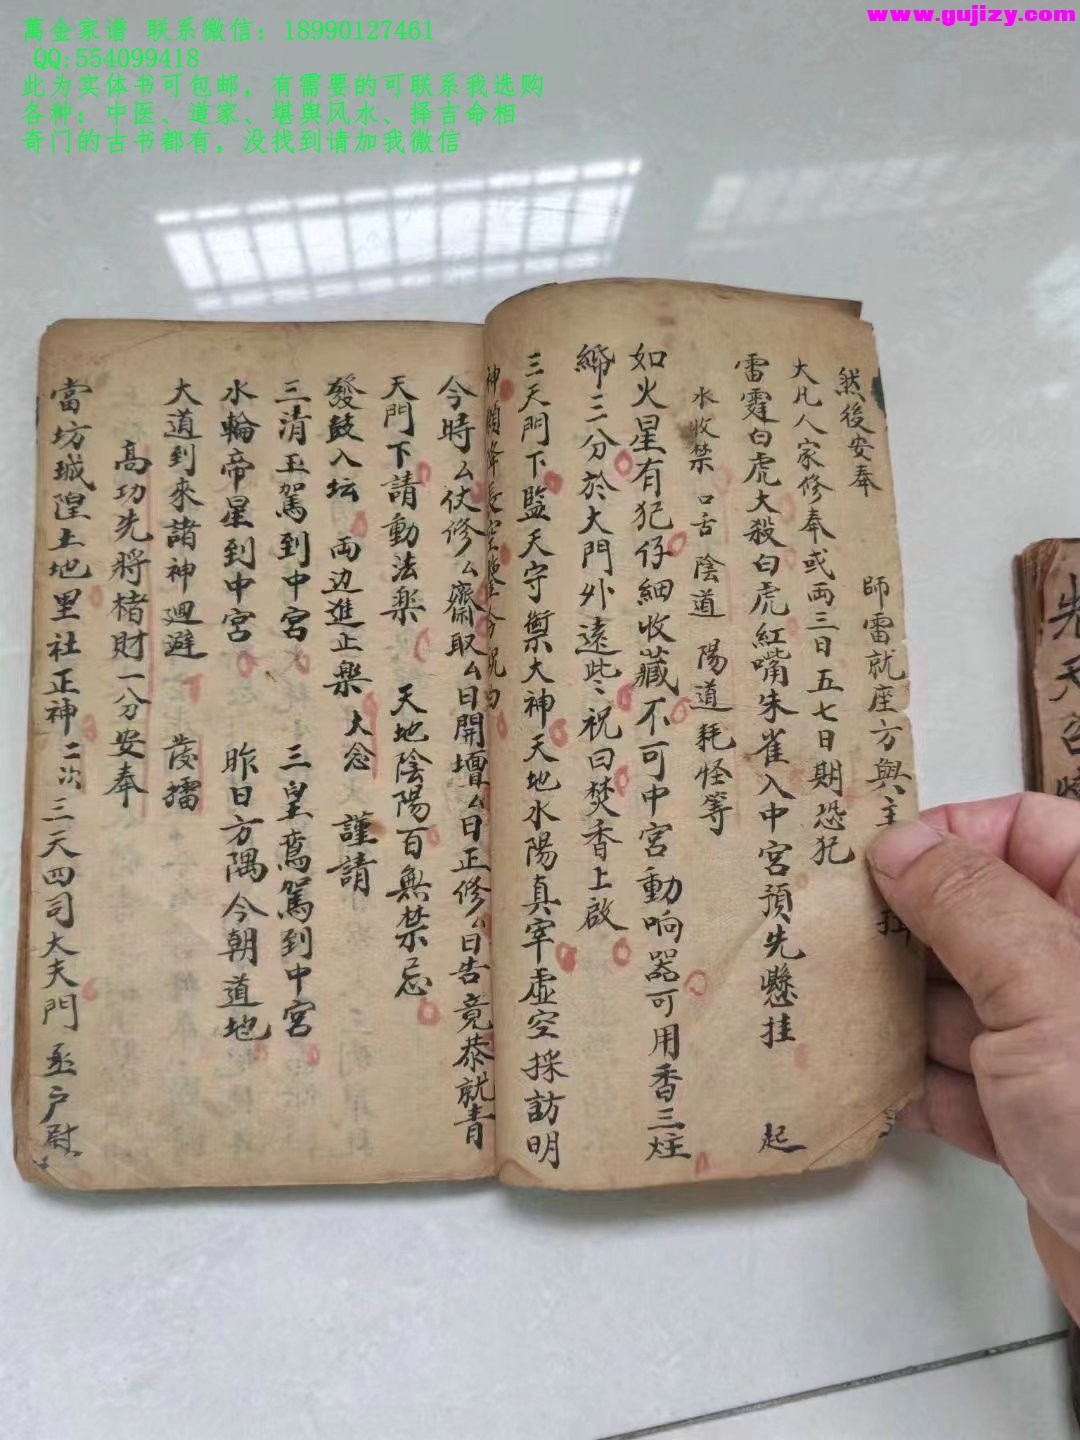 萬金家谱 联系微信：18990127461
QQ:554099418
此为实体书可包邮，有需要的可联系我选购
各种：中医、道家、堪舆风水、择吉命相
奇门的古书都有，没找到请加我微信
www.gujizy.com
然後安奉 師雷就座方與主
大凡人家修奉或両三日五七日期恐犯
雷霆白虎大殺白虎紅嘴朱雀入中宮預先懸挂 起
水收禁 口舌 陰道 陽道耗怪等
如火星有犯仔細收藏不可中宮動响器可用香三炷
三分於大門外遠些祝曰焚香上啟
三天門下監天守禦大神天地水陽真宰虛空採訪明
神願降 空鑒今祝
今時厶伏修厶齋取厶日開壇厶日正修厶日告竟恭就青
天門下請動法楽 天地陰陽百無禁忌
發鼓入坛 両边進正楽 大念 謹請
三清玉駕到中宮 三皇鸞駕到中宮
水輪帝星到中宮 昨日方隅今朝道地
大道到來諸神廻避 發擂
高功先將楮財一分安奉
當坊城隍土地里社正神 二次 三天四司大夫門丞户尉
先天